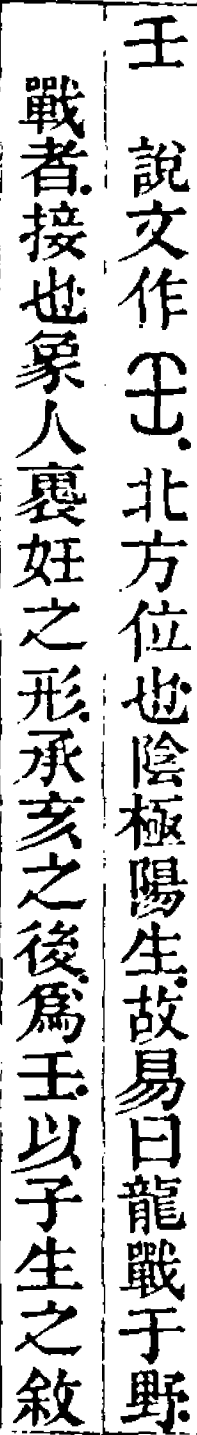 壬　說文作𡈼.北方位也陰極陽生.故易曰龍戰于野.
戰者.接也象人褢妊之形.承亥之後.爲壬.以子生之敘